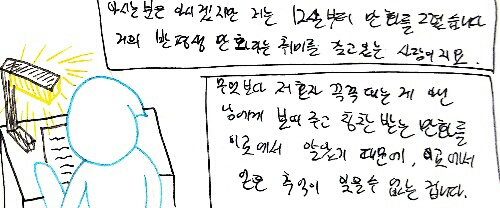 아시는 분은 아시겠지만 저는 12살부터 만화를 그렸습니다
거의 반평생 만화라는 취미를 잡고 온 사람이지요.
무엇보다 저 혼자 끅끅 대는 게 아닌
남에게 보여주고 칭찬 받는 만화를
이곳에서 알았기 때문에, 이곳에서
얻은 추억이 잊을수 없는 겁니다.